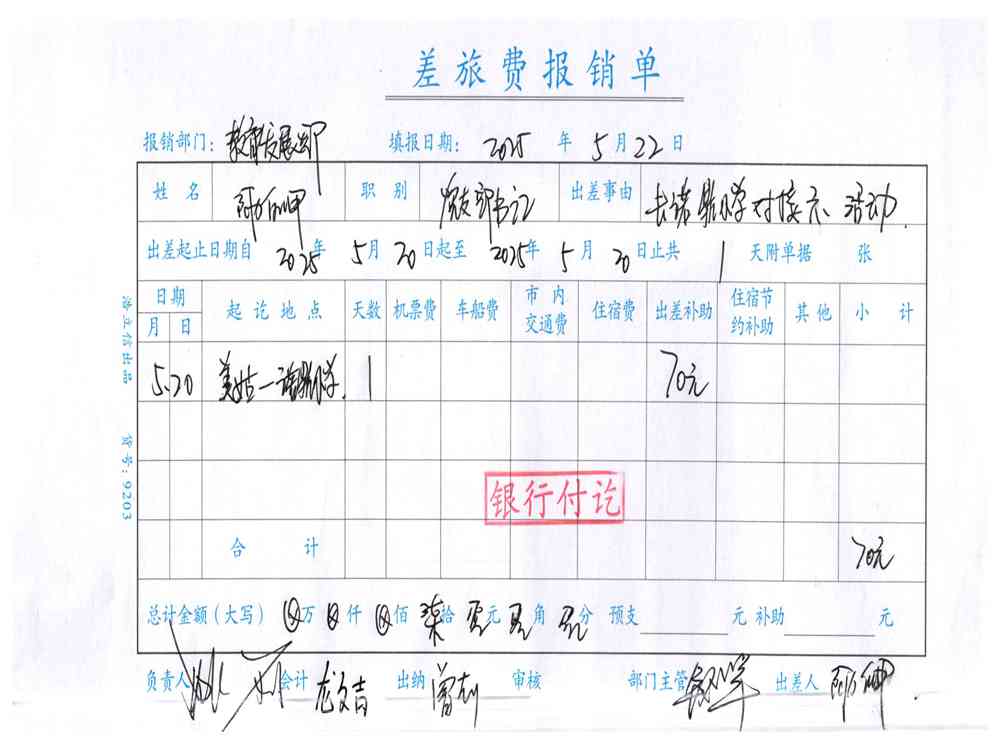 差旅费报销单
报销部门: 教育发展部 填报日期: 2025 年 5 月 22 日
姓 名 职 别 党支部书记 出差事由 对接 活动.
出差起止日期自 2025 年 5 月 20 日起至 2025 年 5 月 20 日止共 1 天附单据 张
日期 起 讫 地 点 天数 机票费 车船费 市 内 交通费 住宿费 出差补助 住宿节 约补助 其 他 小 计
月 日
5.20 美姑一 小学. 1 70元
银行付讫
合 计 70元
总计金额(大写) 万 仟 佰 柒 拾 零 元 零 角 零 分 预支 元 补助 元
负责人 会计 龙文吉 出纳 审核 部门主管 出差人
渤立信出品 货号: 9203